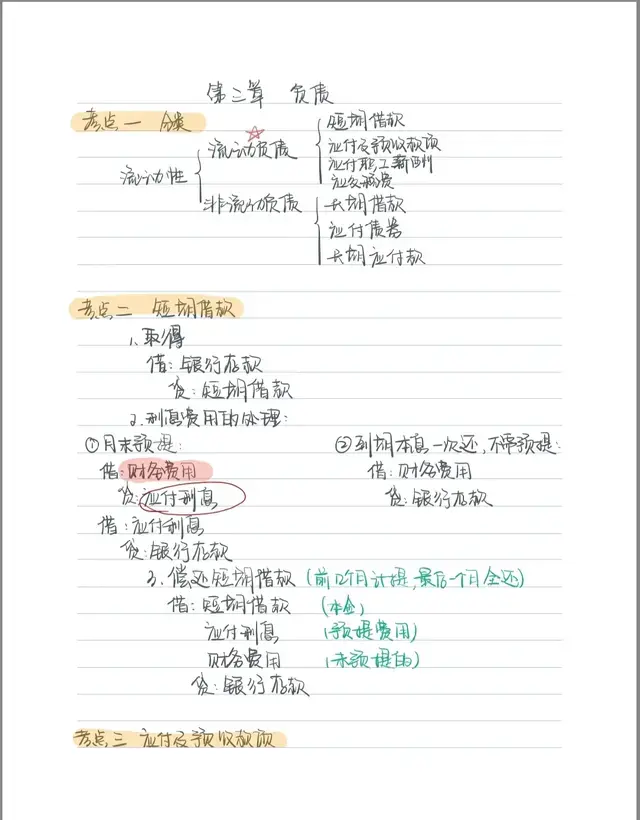 第三章 负债
考点一 分类
流动性
流动负债
短期借款
应付及预收款项
应付职工薪酬
应交税费
非流动负债
长期借款
应付债券
长期应付款
考点二 短期借款
1、取得
借：银行存款
贷：短期借款
2、利息费用的处理：
①月末预提：
借：财务费用
贷：应付利息
借：应付利息
贷：银行存款
②到期本息一次还，不需预提：
借：财务费用
贷：银行存款
3、偿还短期借款（前几个月计提，最后一个月全还）
借：短期借款（本金）
应付利息（预提费用）
财务费用（未预提的）
贷：银行存款
考点三 应付及预收款项